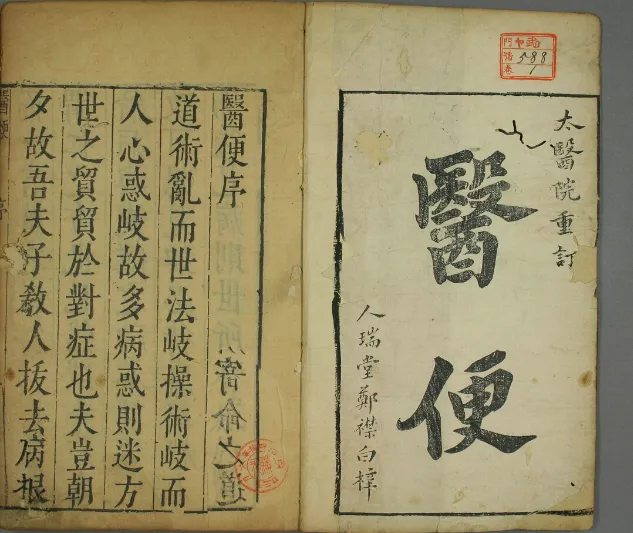 588
1
太醫院重訂
醫便
人瑞堂鄭襟白梓
醫便序
寄命之道
道術亂而世法岐操術岐而
人心惑岐故多病惑則迷方
世之貿貿於對症也夫豈朝
夕故吾夫子教人拔去病根